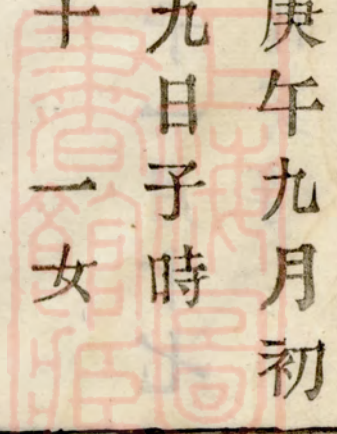 庚午九月初
九日子時
十一女